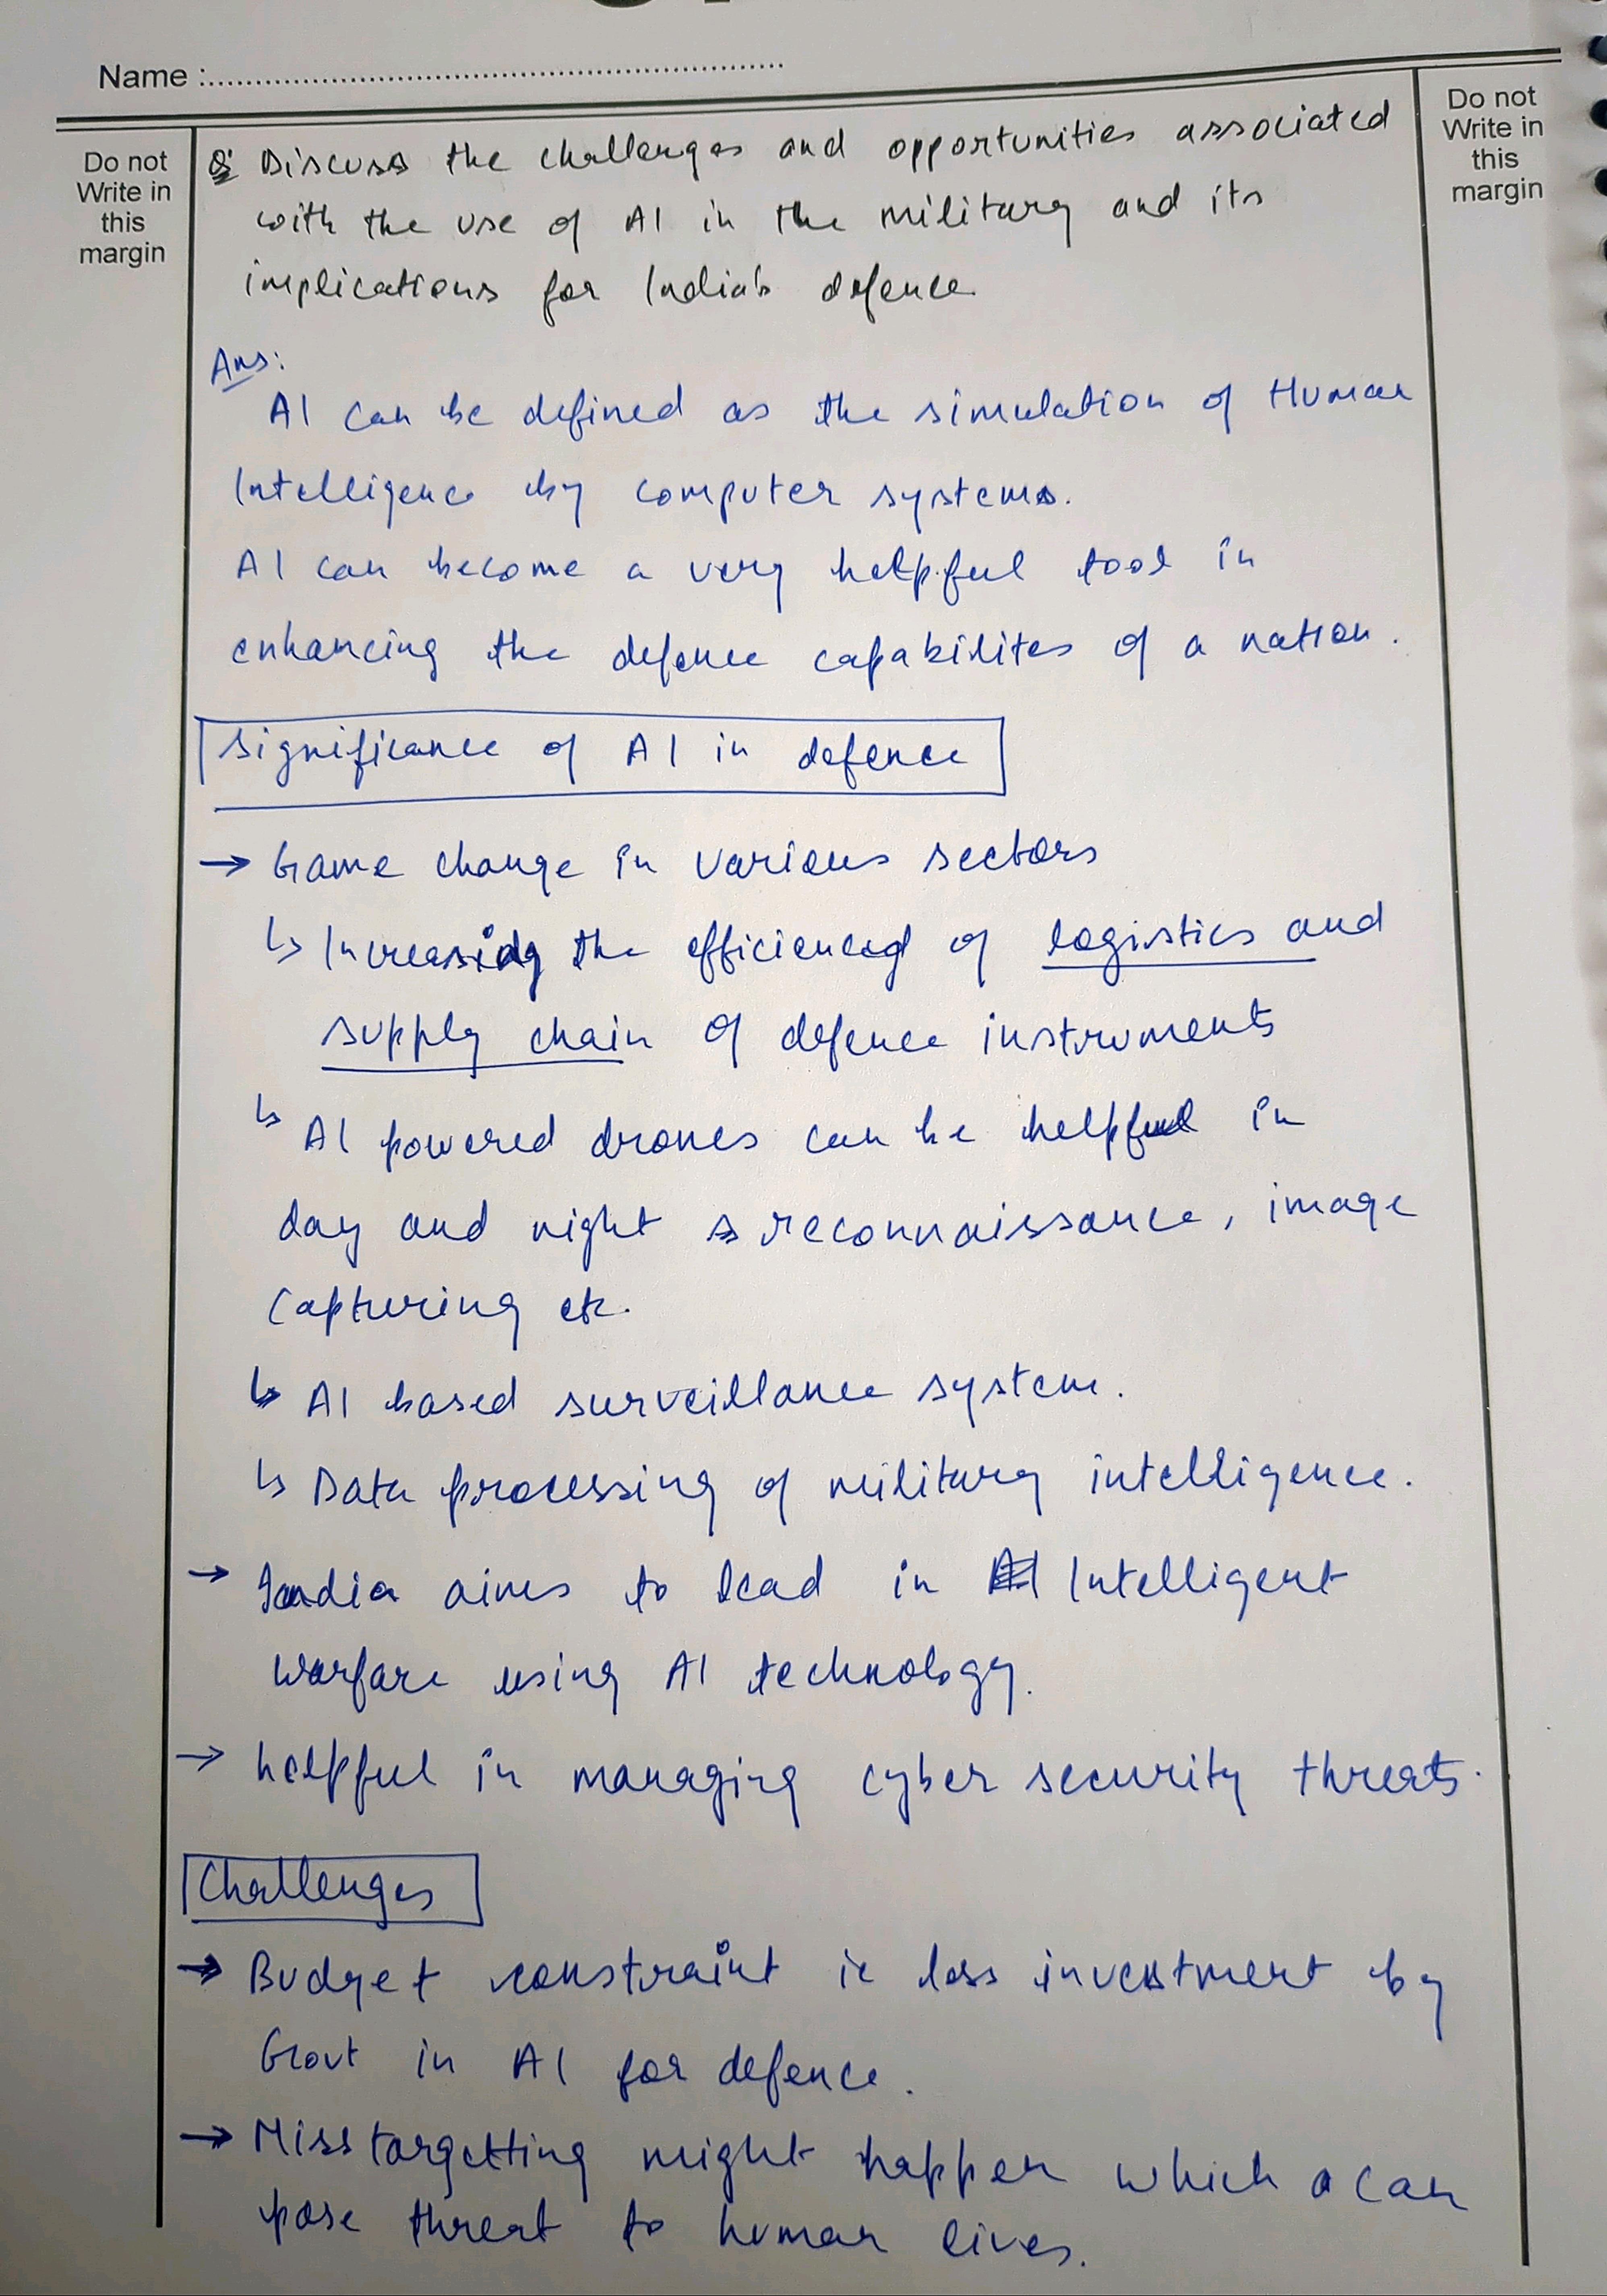 Name :
Do not
Write in
this
margin
Do not
Write in
this
margin
Q: Discuss the challenges and opportunities associated
with the use of AI in the military and its
implications for India's defence
Ans:
AI can be defined as the simulation of Human
Intelligence by computer systems.
AI can become a very helpful tool in
enhancing the defence capabilites of a nation.
Significance of AI in defence
→ Game change in various sectors
↳ Increasing the efficiency of logistics and
supply chain of defence instruments
↳ AI powered drones can be helpful in
day and night reconnaissance, image
capturing etc.
↳ AI based surveillance system.
↳ Data processing of military intelligence.
→ India aims to lead in Intelligent
warfare using AI technology.
→ helpful in managing cyber security threats.
Challenges
→ Budget constraint ie less investment by
Govt in AI for defence.
→ Miss targetting might happen which can
pose threat to human lives.